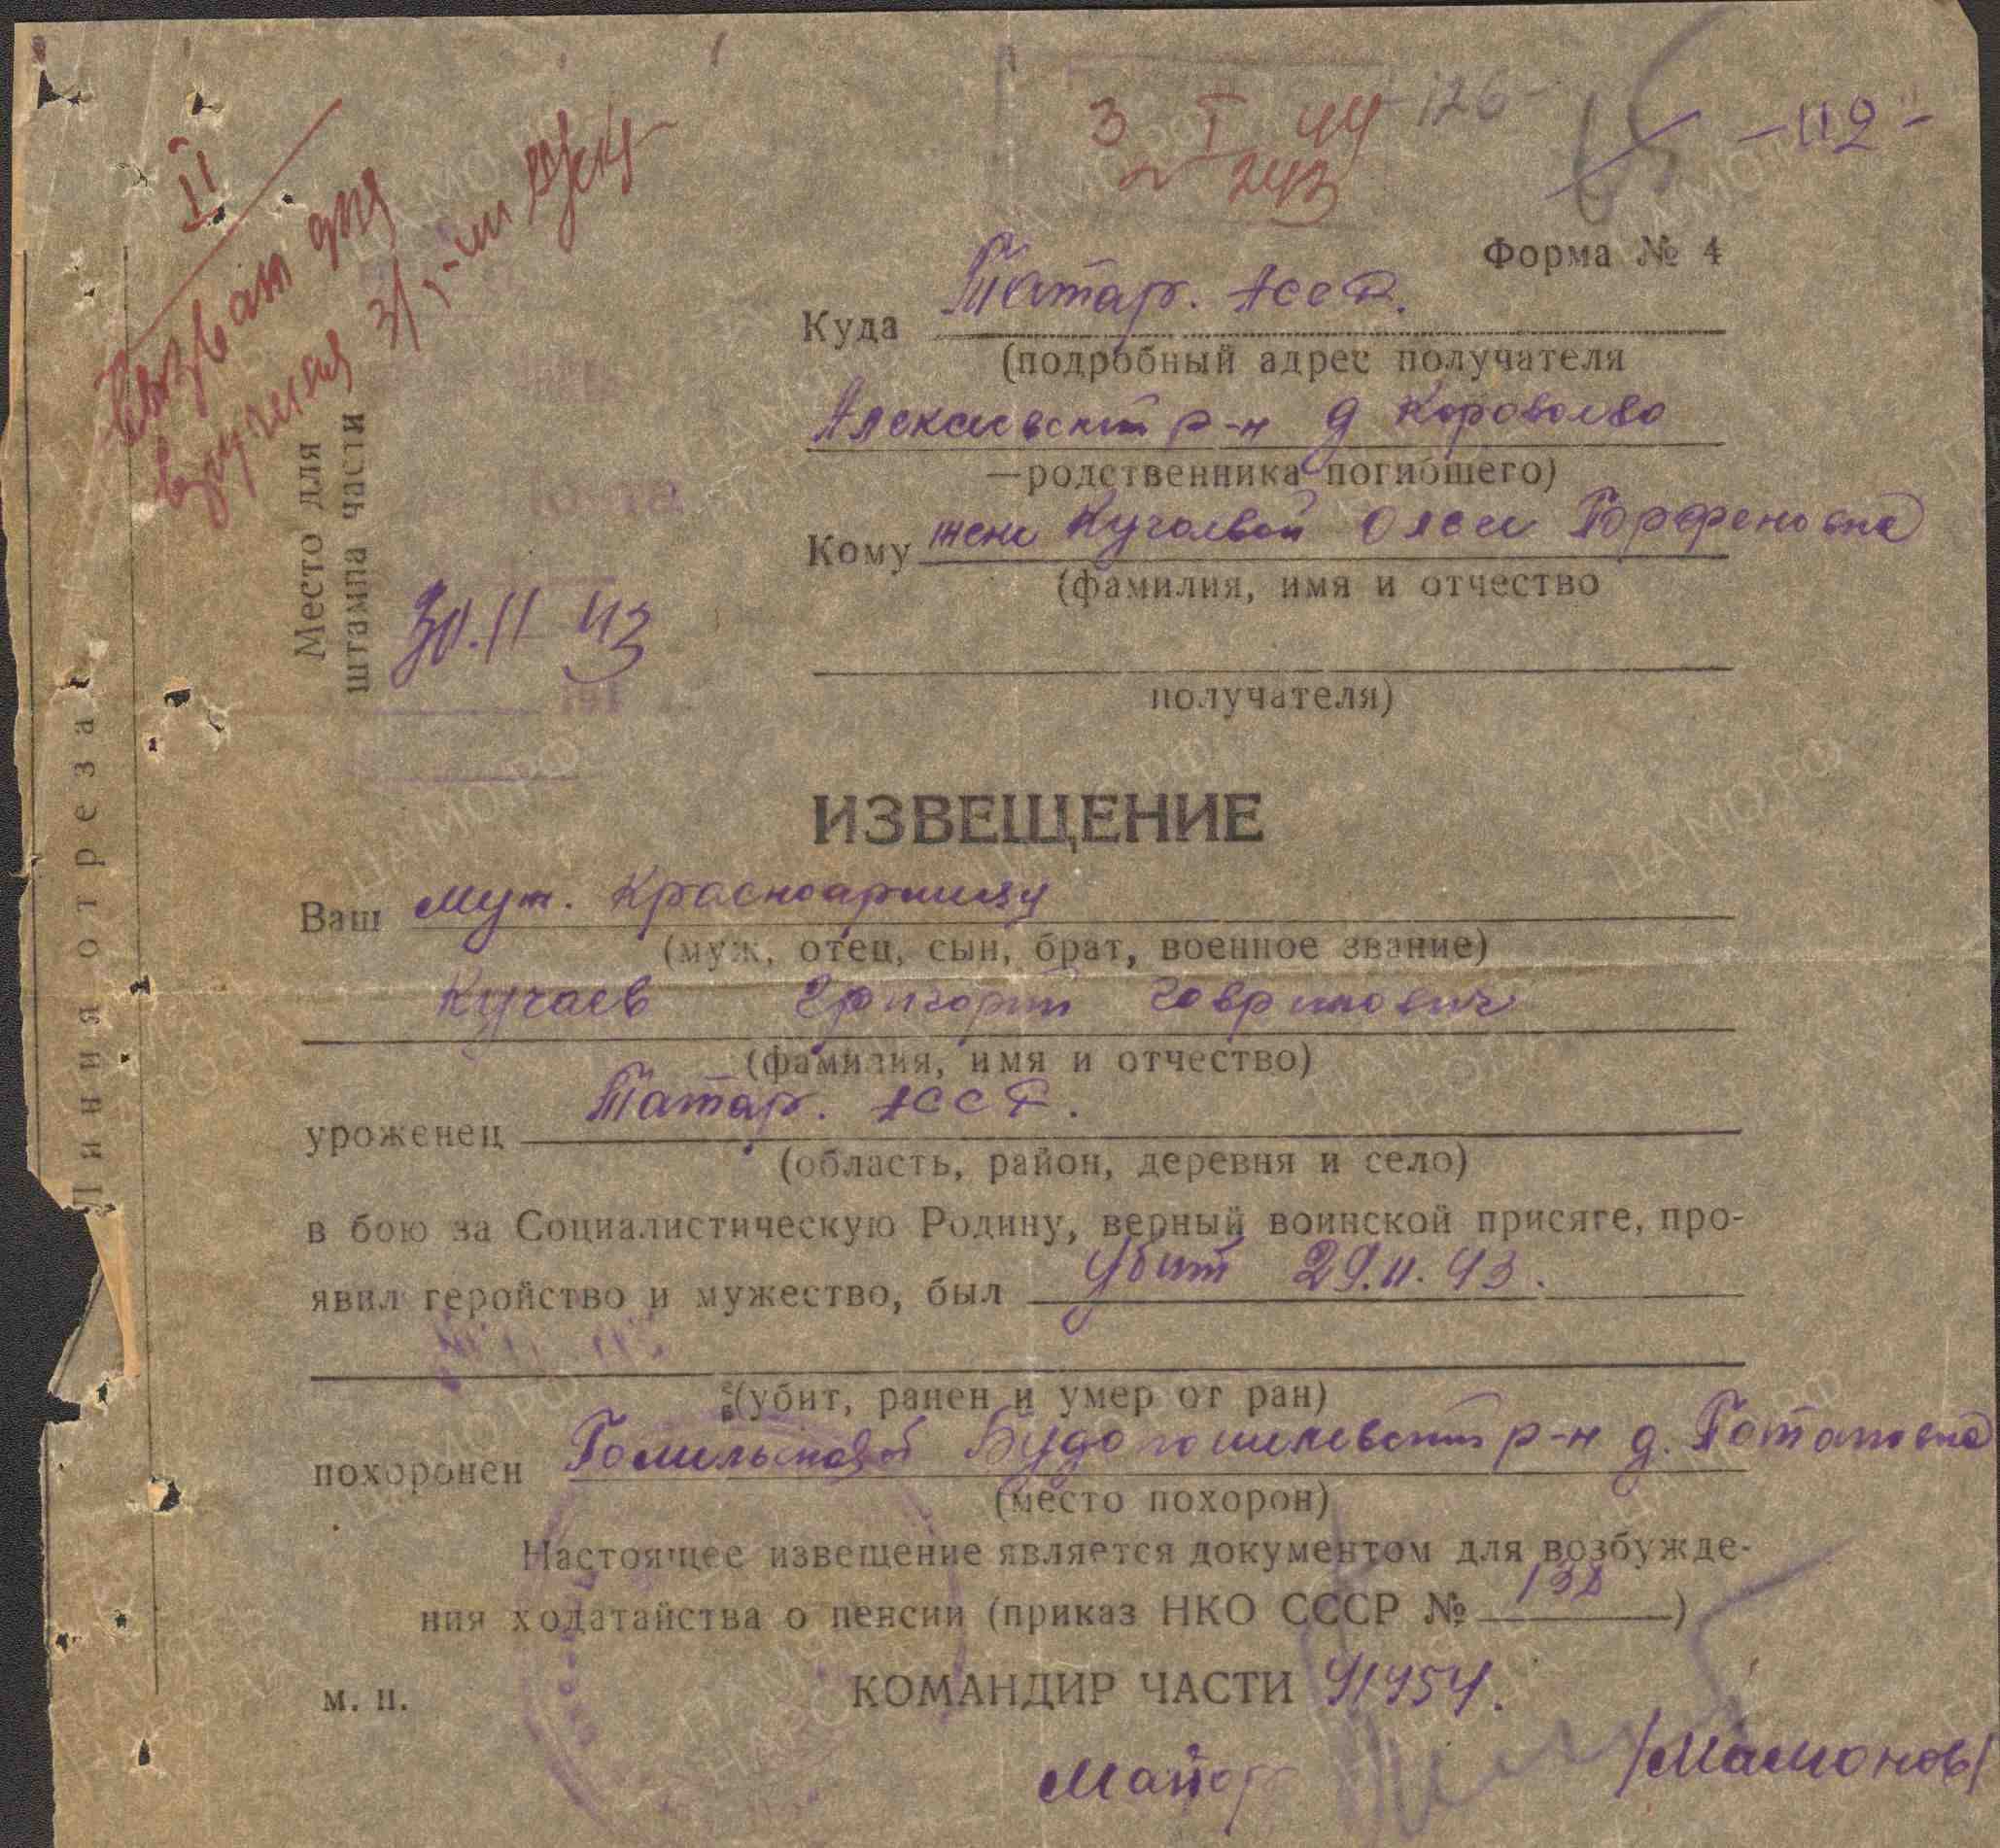 II
3 I 44
126-
-112-
№ 243
вызван для
вручения 3/I-44
Форма № 4
Куда Татар. АССР.
(подробный адрес получателя
Алексеевский р-н д
—родственника погибшего)
Кому жене Кучаевой
(фамилия, имя и отчество
Место для
штампа части
30.11 43
получателя)
Линия отреза
ИЗВЕЩЕНИЕ
Ваш муж. Красноармиец
(муж, отец, сын, брат, военное звание)
Кучаев Григорий Гаврилович
(фамилия, имя и отчество)
уроженец Татар. АССР.
(область, район, деревня и село)
в бою за Социалистическую Родину, верный воинской присяге, про-
явил геройство и мужество, был убит 29.11.43.
(убит, ранен и умер от ран)
похоронен р-н д.
(место похорон)
Настоящее извещение является документом для возбужде-
ния ходатайства о пенсии (приказ НКО СССР № 138)
м. п.
КОМАНДИР ЧАСТИ 41454.
Майор /Мамонов/